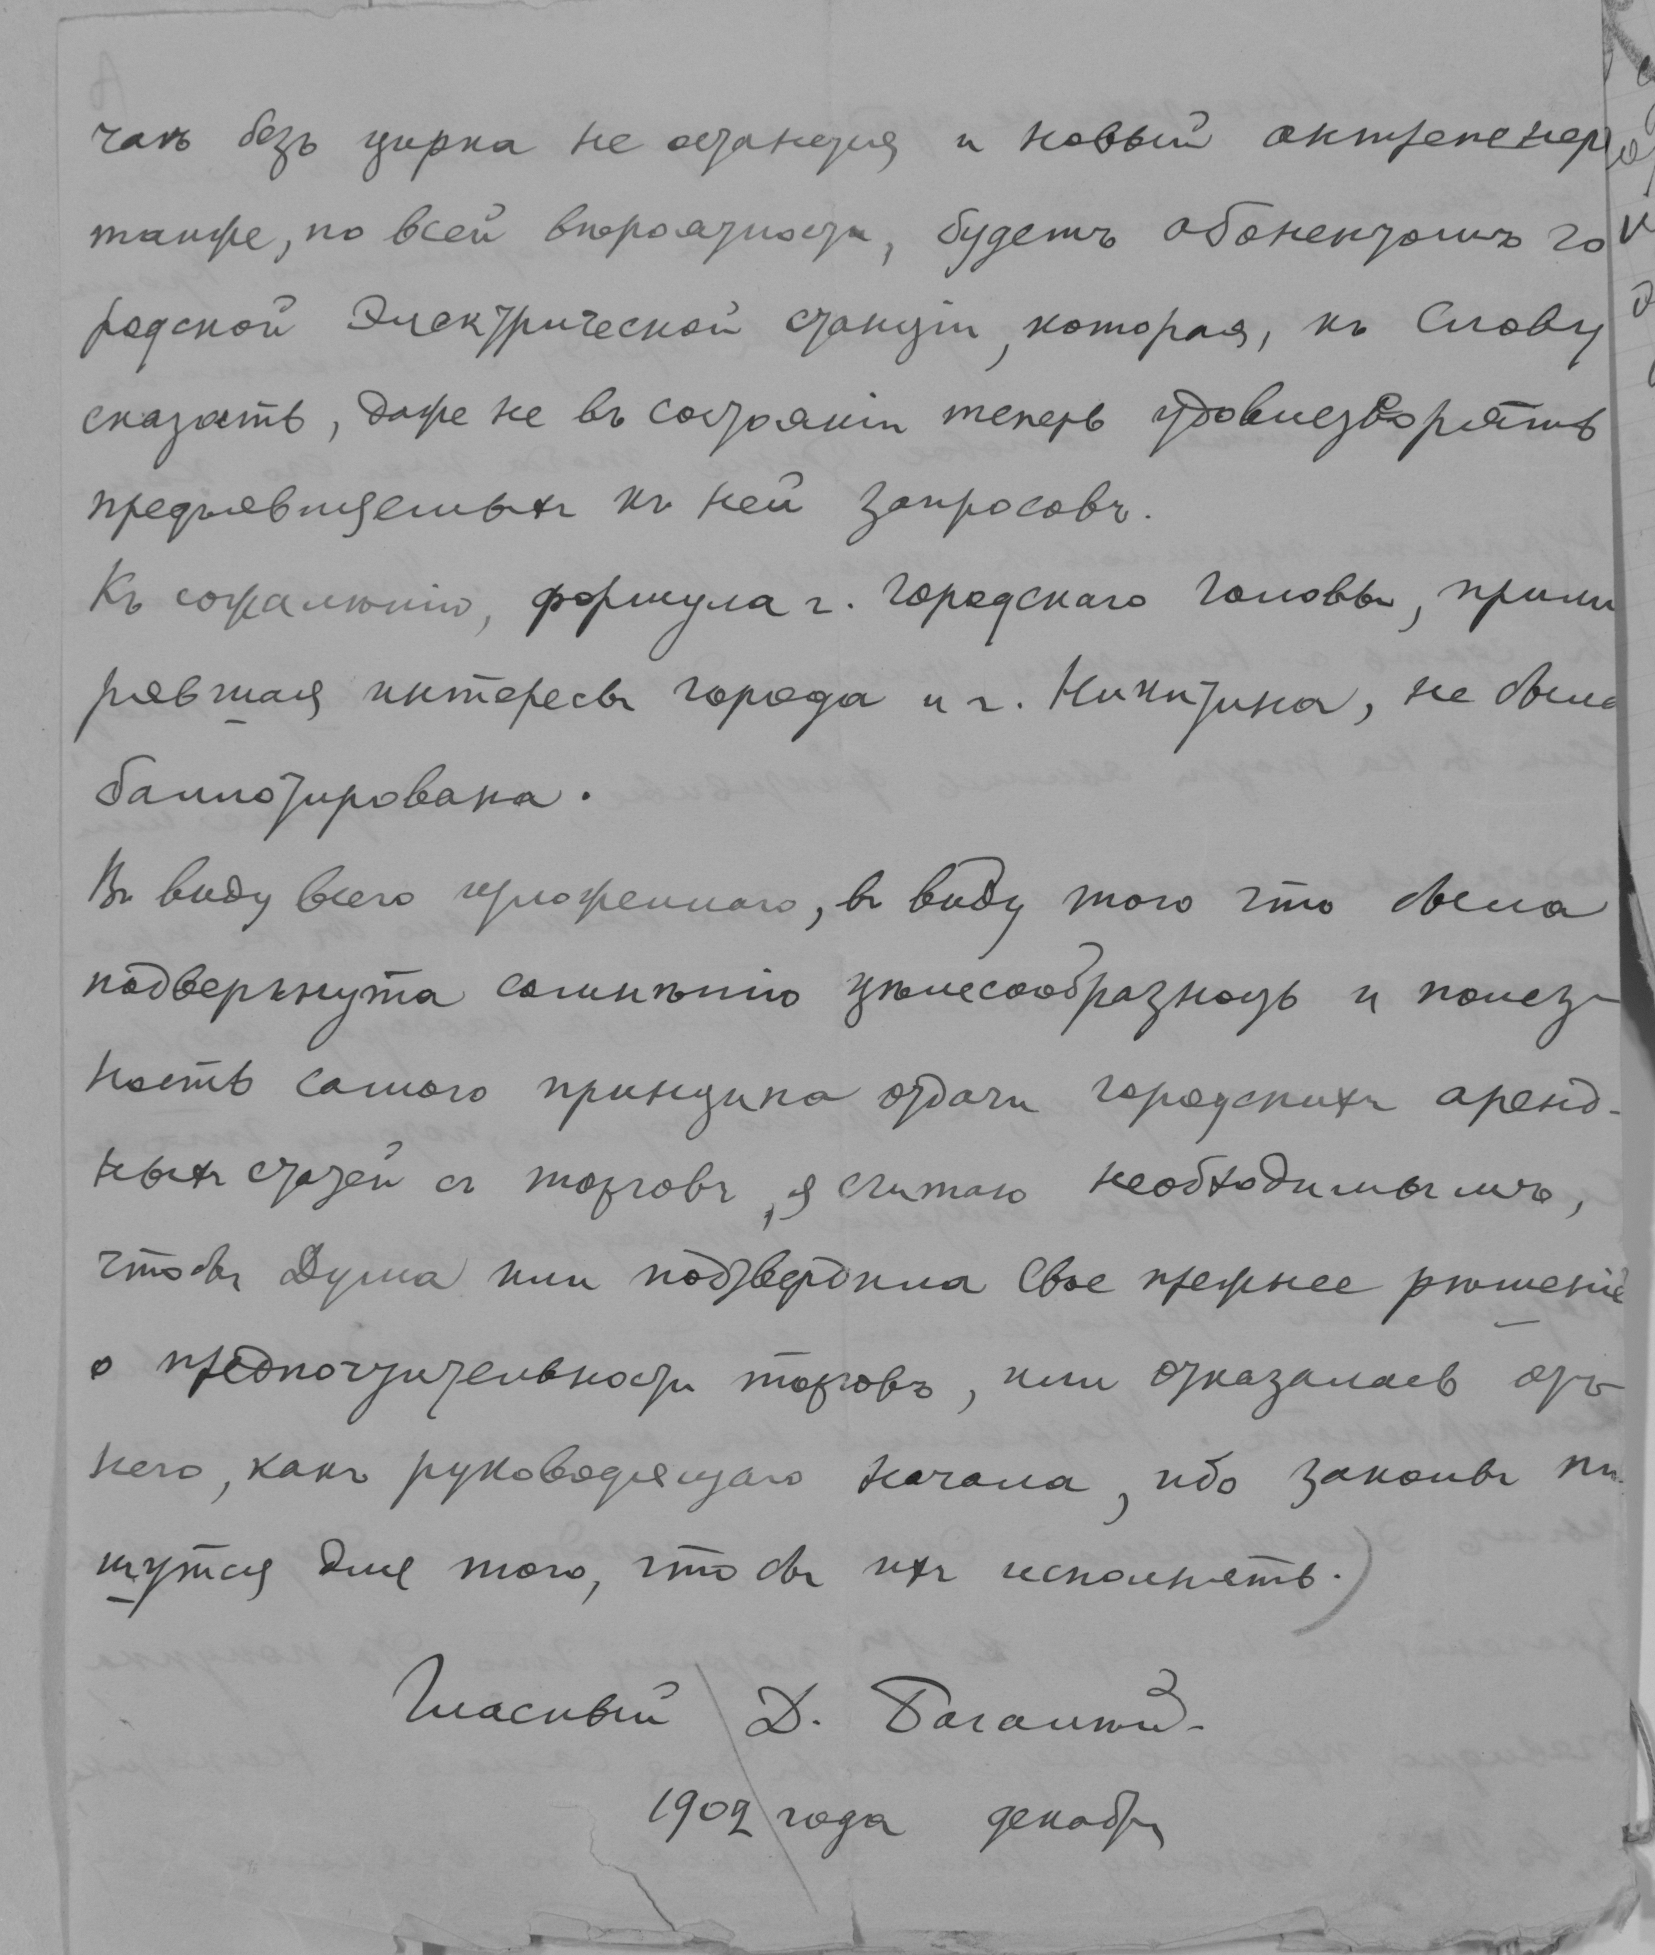 чанъ безъ цирка не останется и новый антрепенер
также, по всей вѣроятности, будетъ абонентомъ го
родской Электрической станціи, которая, къ слову
сказать, даже не въ состояніи теперь удовлетворять
предъявляемыхъ къ ней запросовъ.
Къ сожалѣнію, формула г. городскаго головы, прими
рявшая интересы города и г. Никитина, не была
баллотирована.
Въ виду всего изложеннаго, въ виду того что была
подвергнута сомнѣнію цѣлесообразность и полез-
ность самого принципа отдачи городскихъ аренд-
ныхъ статей съ торговъ, я считаю необходимымъ,
чтобы Дума или подтвердила свое прежнее рѣшеніе
о предпочтительности торговъ, или отказалась отъ
него, какъ руководящаго начала, ибо законы пи
шутся для того, чтобы ихъ исполнять.)
Гласный Д. Багалѣй.
1902 года декабря